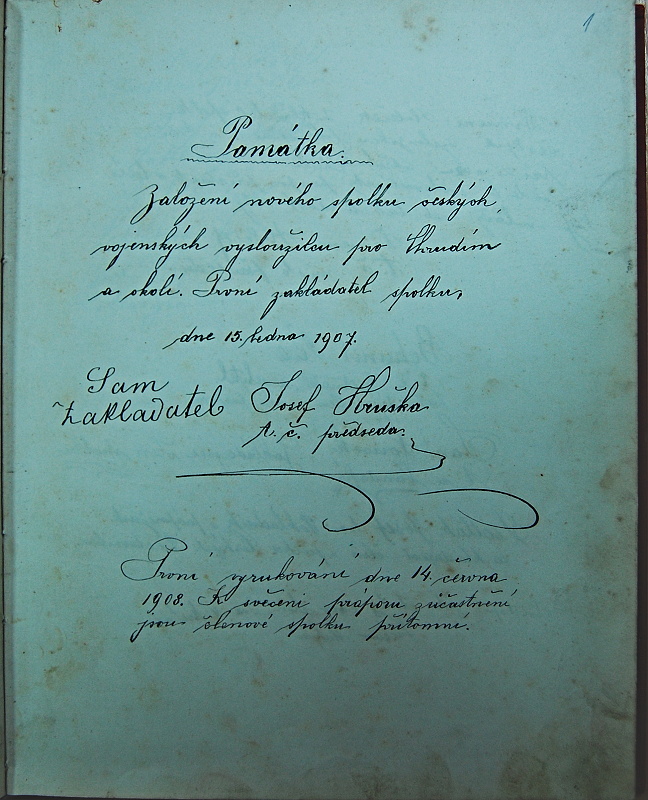 1
Památka.
Založení nového spolku českých
vojenských vysloužilcu pro Chrudím
a okolí. První zakládatel spolku,
dne 15. ledna 1907.
Sam
zakladatel Josef Hruška
t. č. předseda.
První vyrukování dne 14. června
1908. K svěcení práporu zúčastnění
jsou členové spolku přítomní.